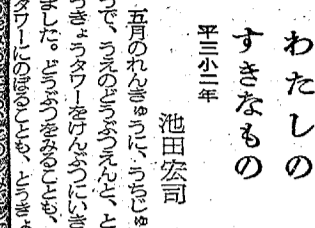 わたしの
すきなもの
平三小二年
池田宏司
五月のれんきゅうに、うちじゅ
うで、うえのどうぶつえんと、と
うきょうタワーをけんぶつにいき
ました。どうぶつをみることも、
タワーにのぼることも、とうきょ